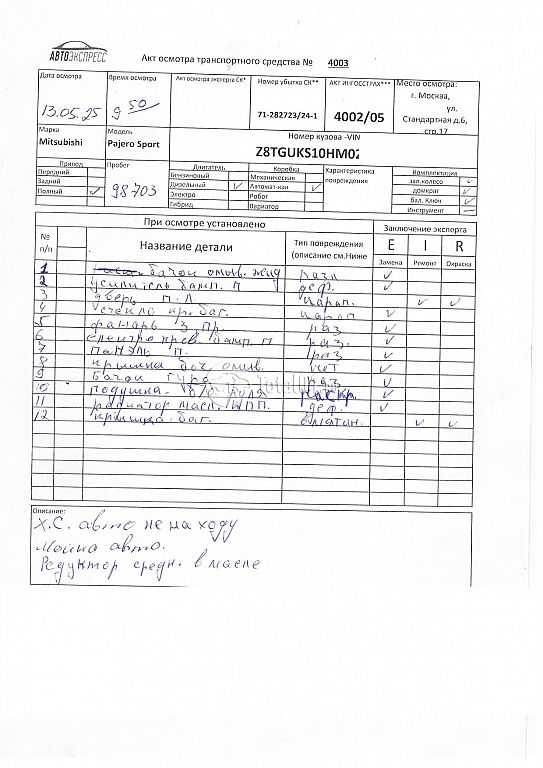 АВТОЭКСПРЕСС
Акт осмотра транспортного средства № 4003
Дата осмотра Время осмотра Акт осмотра эксперта СК* Номер убытка СК** АКТ ИНГОССТРАХ*** Место осмотра:
13.05.25 9 50 71-282723/24-1 4002/05 г. Москва,
ул.
Стандартная д.6,
стр.17
Марка Модель Номер кузова -VIN
Mitsubishi Pajero Sport Z8TGUKS10HM02
Привод Пробег Двигатель Коробка Характеристика повреждения Комплектация
Передний 98703 Бензиновый Механическая зап.колесо ✓
Задний Дизельный ✓ Автомат-кая ✓ домкрат ✓
Полный ✓ Электро Робот бал. Ключ ✓
Гибрид Вариатор Инструмент —
При осмотре установлено Заключение эксперта
№ п/п Название детали Тип повреждения (описание см.Ниже E I R
Замена Ремонт Окраска
1 бачок омыв. жид ✓
2 усилитель бамп. П деф. ✓
3 дверь п. Л царап. ✓ ✓
4 стекло кр. баг. царап ✓
5 фонарь з. пр. раз ✓
6 раз. ✓
7 панэль п. раз ✓
8 крышка бач. омыв. ✓
9 бачок гура раз ✓
10 подушка. раскр. ✓
11 радиатор масл. деф. ✓
12 крышка баг. ✓ ✓
Описание:
Х.С. авто не на ходу
Мойка авто.
Редуктор средн. в масле